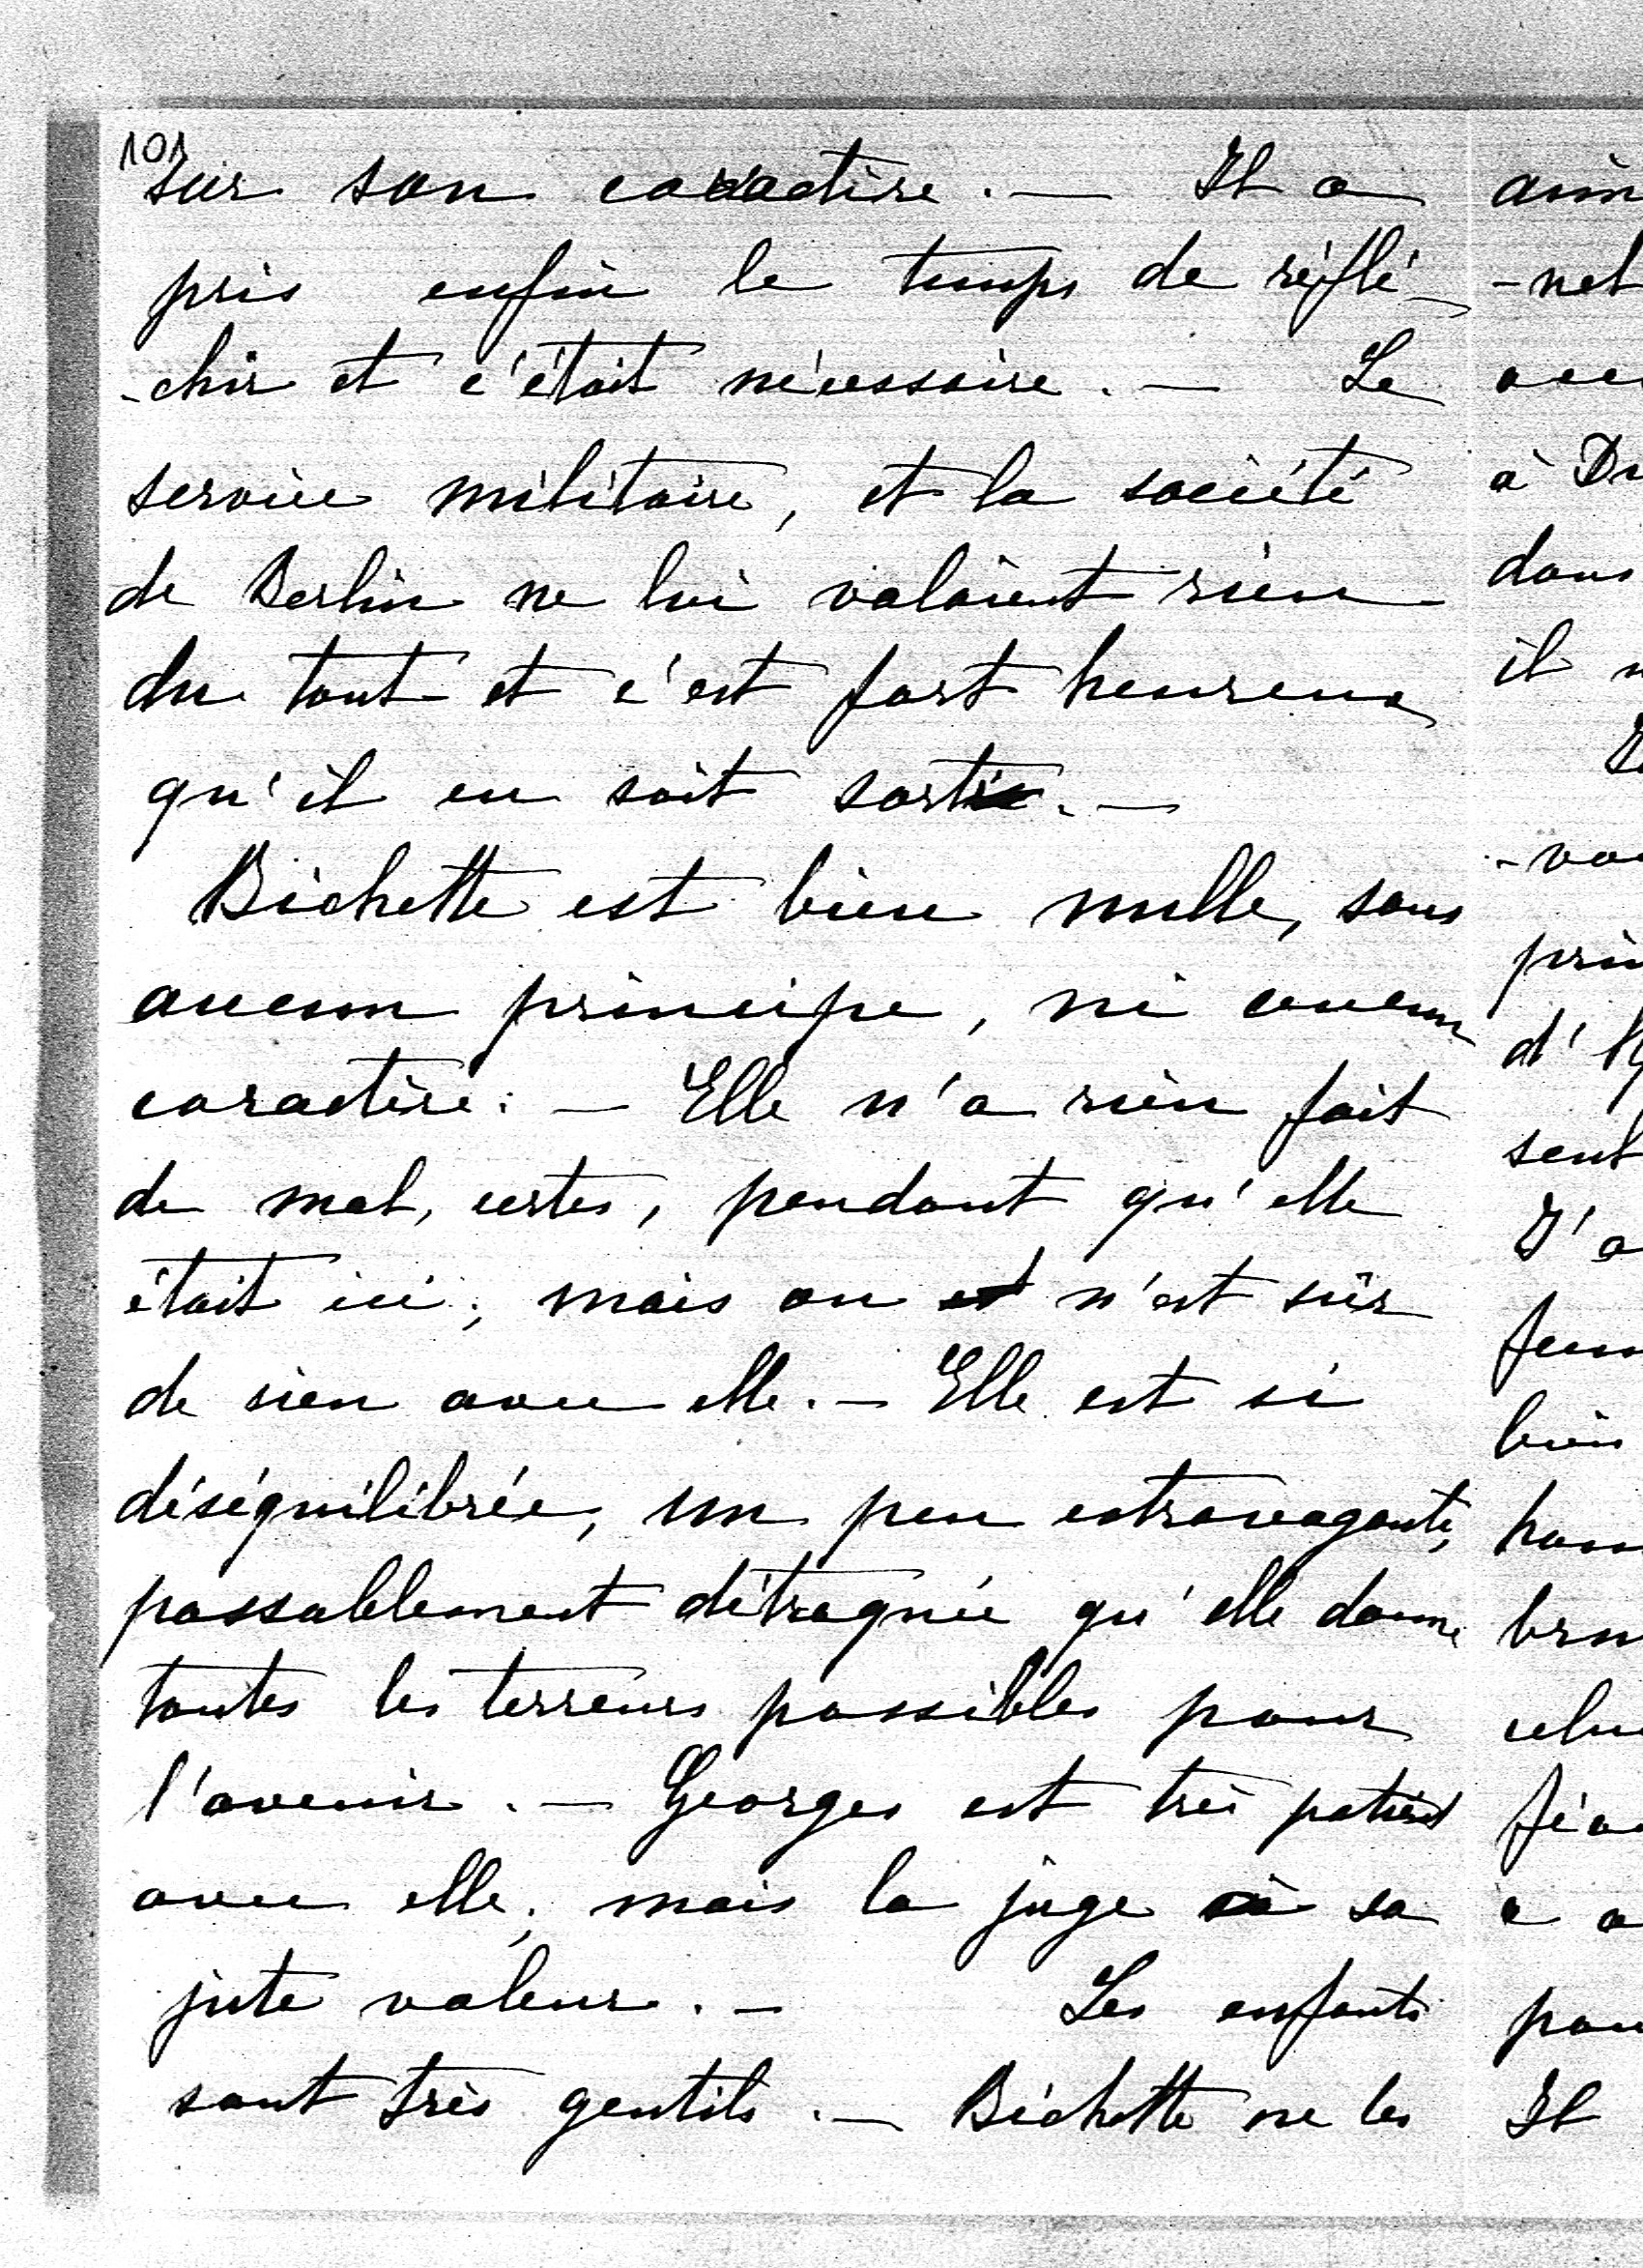 101
sur son caractère. — Il a
pris enfin le temps de réflé-
-chir et c'était nécessaire. — Le
service militaire, et la société
de Berlin ne lui valaient rien
du tout et c'est fort heureux
qu'il en soit sorti. —
Bichette est bien nulle, sans
aucun principe, ni aucun
caractère. — Elle n'a rien fait
de mal, certes, pendant qu'elle
était ici; mais on n'est sûr
de rien avec elle. — Elle est si
déséquilibrée, un peu extravagante,
passablement détraquée qu'elle donne
toutes les terreurs possibles pour
l'avenir. — Georges est très patient
avec elle; mais la juge à sa
juste valeur. — Les enfants
sont très gentils. — Bichette ne les
-net
à
il
d'
J'a
a a
Il